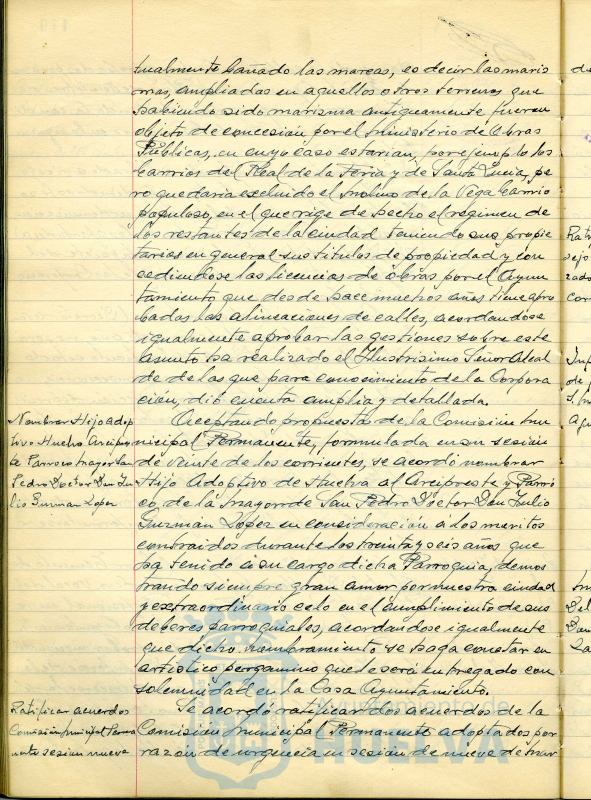 tualmente bañado las mareas, es decir las maris
mas, ampliadas en aquellos otros terrenos que
habiendo sido marisma antiguamente, fueran
objeto de concesion por el Ministerio de Obras
Públicas, en cuyo caso estarian, por ejemplo los
barrios del Real de la Feria y de Santa Lucia, pe
ro quedaria excluido el Molino de la Vega barrio
populoso, en el que rige de hecho el regimen de
los restantes de la ciudad teniendo sus propie
tarios en general sus titulos de propiedad y con
cediendose las licencias de obras por el Ayun
tamiento que desde hace muchos años tiene apro
badas las alineaciones de calles, acordandose
igualmente aprobar las gestiones sobre este
asunto ha realizado el Ilustrisimo Señor Alcal
de de las que para conocimiento de la Corpora
ción, dió cuenta amplia y detallada.
Nombrar Hijo Adop
tivo Huelva Arcipres
te Parroco mayor San
Pedro Doctor Don Ju
lio Guzman Lopez
Aceptando propuesta de la Comision Mu
nicipal Permanente, formulada en su sesion
de veinte de los corrientes, se acordó nombrar
Hijo Adoptivo de Huelva al Arcipreste y Parro
co, de la mayor de San Pedro Doctor Don Julio
Guzman López en consideración a los meritos
contraidos durante los treinta y seis años que
ha tenido a su cargo dicha Parroquia, demos
trando siempre gran amor por nuestra ciudad
y extraordinario celo en el cumplimiento de sus
deberes parroquiales, acordandose igualmente
que dicho nombramiento se haga constar en
artistico pergamino que le será entregado con
solemnidad en la Casa Ayuntamiento.
Ratificar acuerdos
Comision Municipal Perma
nente sesion nueve
Se acordó ratificar los acuerdos de la
Comision Municipal Permanente adoptados por
razón de urgencia en sesion de nueve de mar
Ayuntamiento de
HUELVA